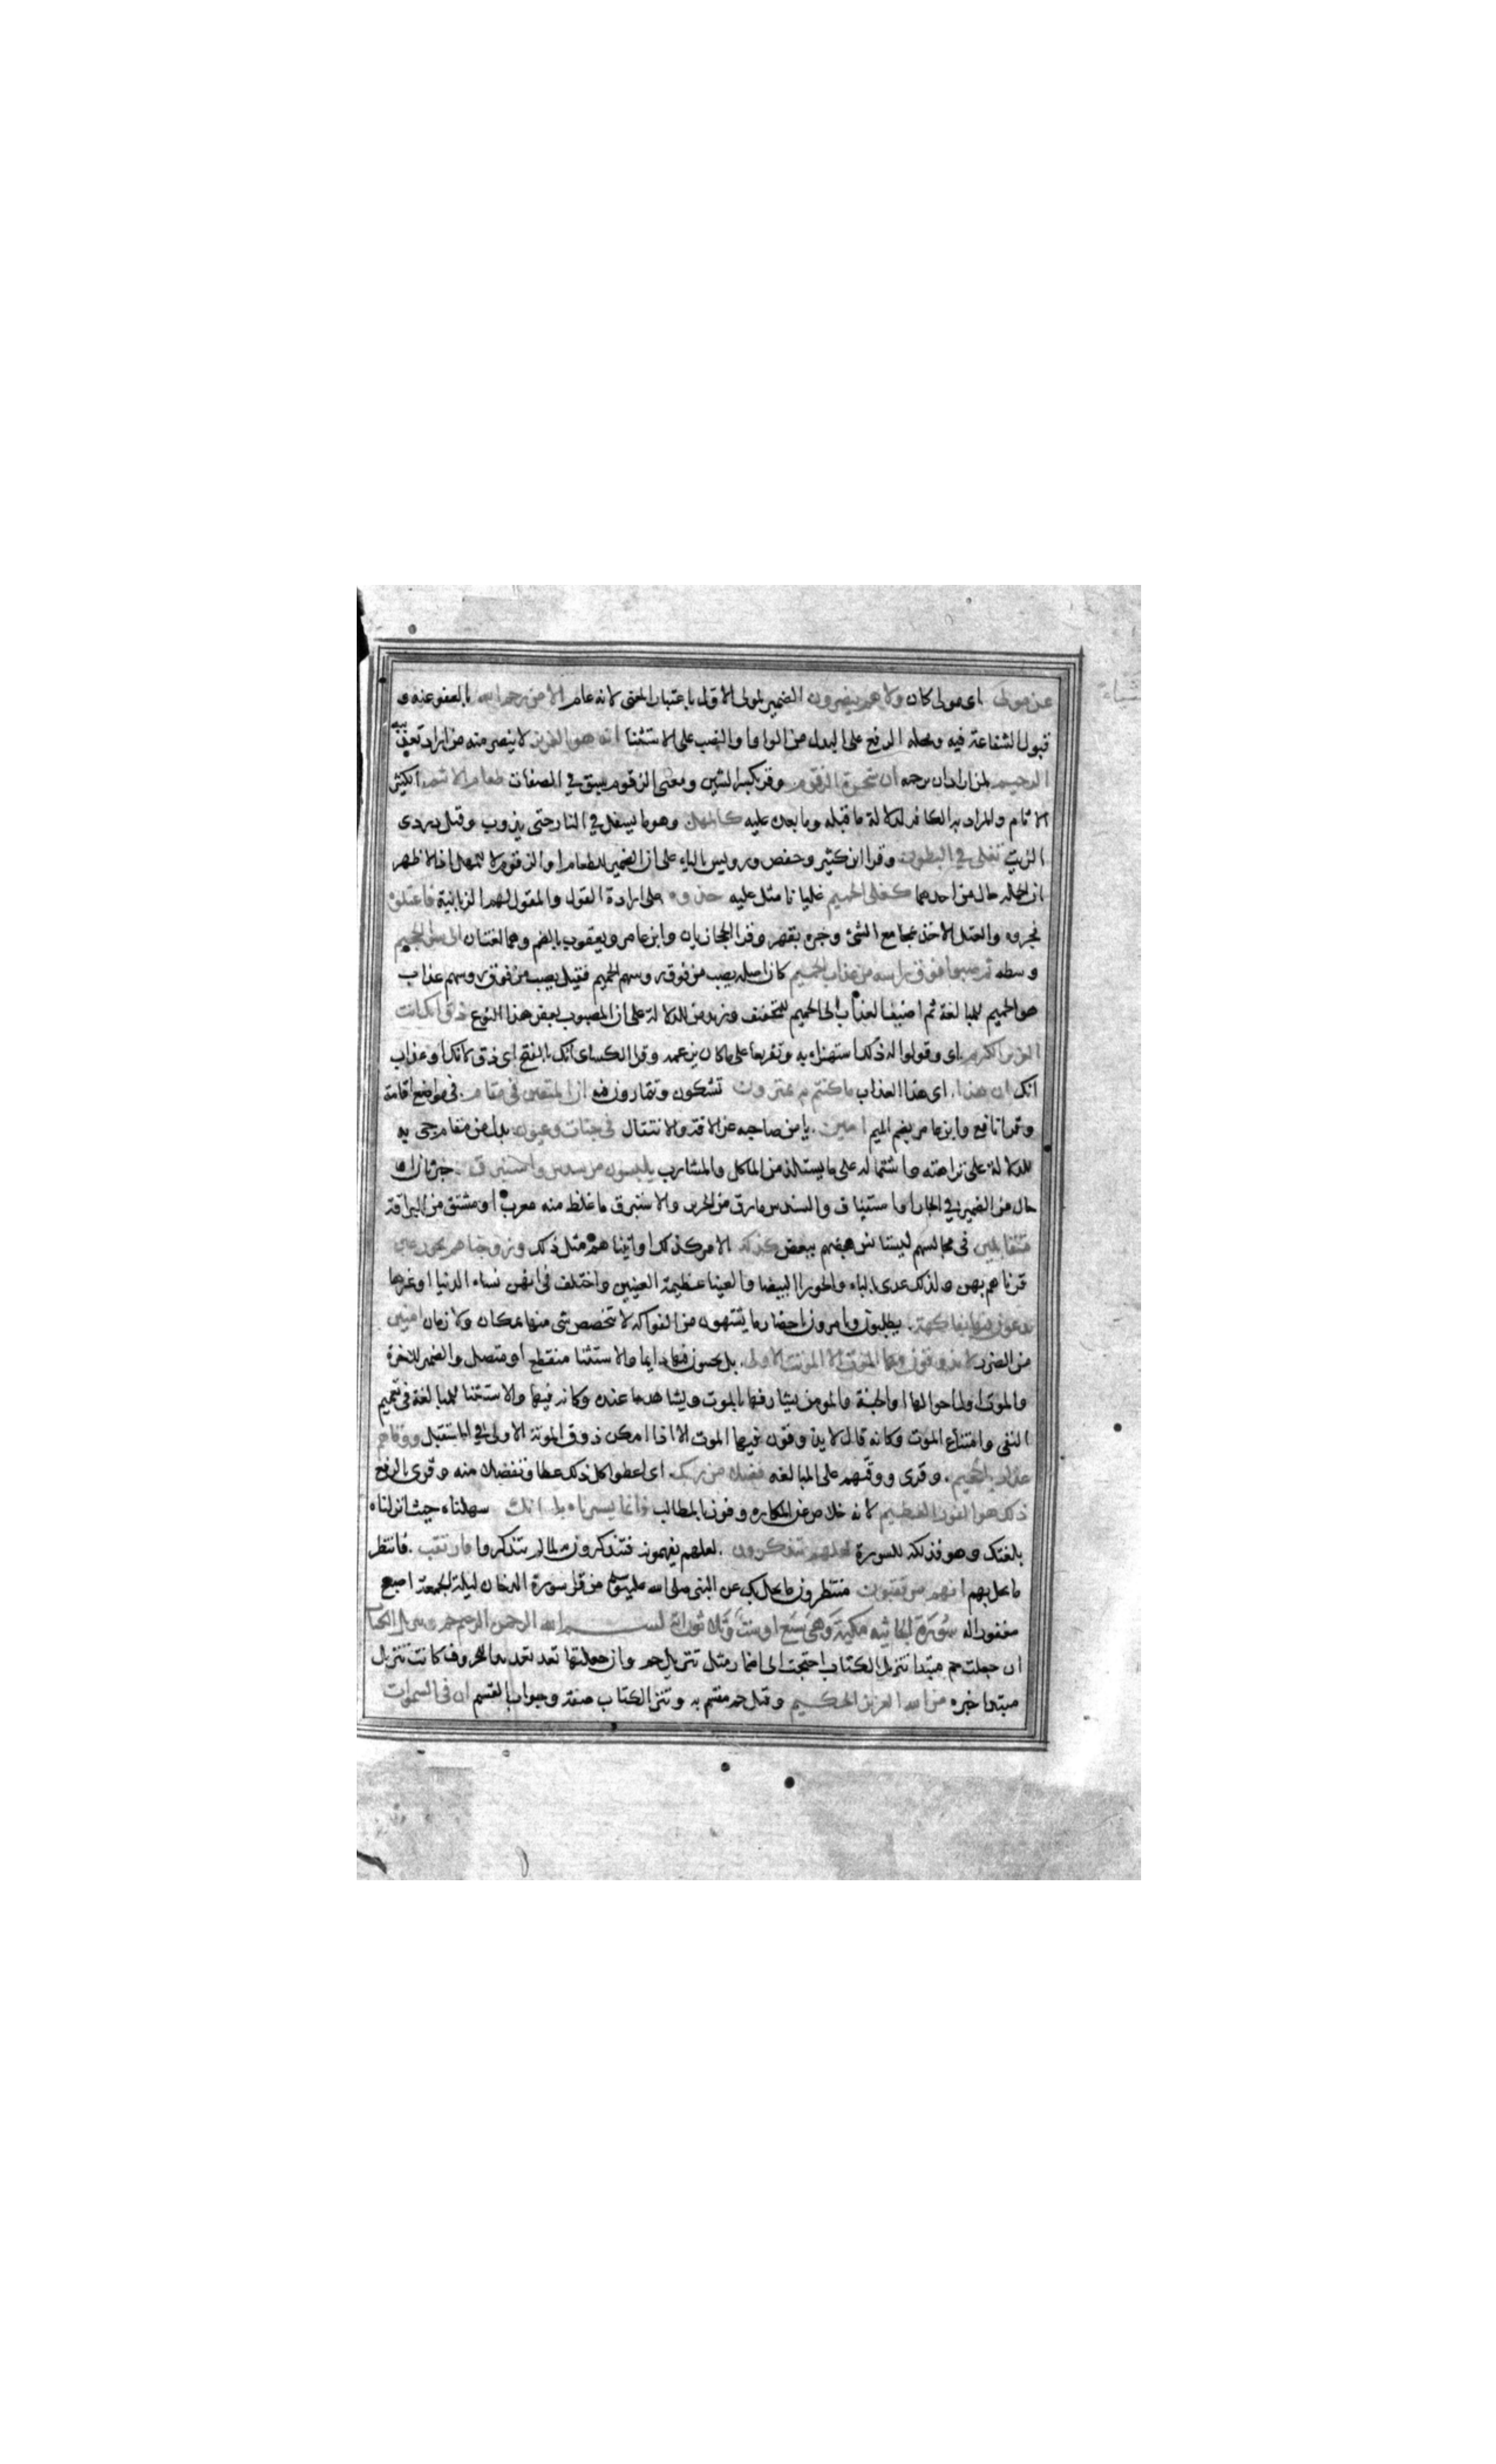 عن مولى اى مولى كان ولا هم ينصرون الضمير لمولى الاول باعتبار المعنى لانه عام الا من رحم الله بالعفو عنه و
قبول الشفاعة فيه ومحله الرفع على البدل من الواو او النصب على الاستثنا انه هو العزيز لا ينصر منه من اراد تعذيبه
الرحيم لمن اراد ان يرحمه ان شجرة الزقوم وقرئ بكسر الشين ومعنى الزقوم سبق في الصفات طعام الاثيم الكثير
الاثام والمراد به الكافر لدلالة ما قبله وما بعده عليه كالمهل وهو ما يمهل في النار حتى يذوب وقيل دردى
الزيت تغلى في البطون وقرا ابن كثير وحفص ورويس بالياء على ان الضمير للطعام او الزقوم لا للمهل اذ الاظهر
ان الجملة حال من احدهما كغلى الحميم غليانا مثل غليه خذوه على ارادة القول والمقول لهم الزبانية فاعتلوه
فجروه والعتل الاخذ بمجامع الشئ وجره بقهر وقرا الحجازيان وابن عامر ويعقوب بالضم وهما لغتان الى سواء الجحيم
وسطه ثم صبوا فوق راسه من عذاب الحميم كان اصله يصب من فوق روسهم الحميم فقيل يصب من فوق روسهم عذاب
هو الحميم للمبالغة ثم اضيف العذاب الى الحميم للتخفيف وزيد من للدلالة على ان المصبوب بعض هذا النوع ذق انك انت
العزيز الكريم اى وقولوا له ذلك استهزاء به وتقريعا على ما كان يزعمه وقرا الكساى انك بالفتح اى ذق لانك او عذاب
انك ان هذا اى هذا العذاب ما كنتم به تمترون تشكون وتمارون فيه ان المتقين فى مقام فى موضع اقامة
وقرا نافع وابن عامر بضم الميم امين يامن صاحبه عن الافة والانتقال في جنات وعيون بدل من مقام جئ به
للدلالة على نزاهته واشتماله على ما يستلذ من الماكل والمشارب يلبسون من سندس واستبرق خبر ثان او
حال من الضمير في الجار او استيناف والسندس ما رق من الحرير والاستبرق ما غلظ منه معرب او مشتق من البراقة
متقابلين فى مجالسهم ليستانس بعضهم ببعض كذلك الامر كذلك او اتيناهم مثل ذلك وزوجناهم بحور عين
قرناهم بهن ولذلك عدى بالباء والحورا البيضا والعينا عظيمة العينين واختلف فى انهن نساء الدنيا او غيرها
يدعون فيها بكل فاكهة يطلبون ويامرون باحضار ما يشتهون من الفواكه لا يتخصص شى منها بمكان ولا زمان امنين
من الضرر لا يذوقون فيها الموت الا الموتة الاولى بل يحيون فيها دايما والاستثنا منقطع او متصل والضمير للاخرة
والموت اول احوالها او الجنة والمومن يشارفها بالموت ويشاهدها عنده وكانه فيها والاستثنا للمبالغة فى تعميم
النفى وامتناع الموت وكانه قال لا يذوقون فيها الموت الا اذا امكن ذوق الموتة الاولى في المستقبل ووقاهم
عذاب الجحيم وقرى ووقيهم على المبالغه فضلا من ربك اى اعطوا كل ذلك عطا وتفضلا منه وقرى بالرفع
ذلك هو الفوز العظيم لانه خلاص عن المكاره وفوز بالمطالب فانما يسرناه بلسانك سهلناه حيث انزلناه
بلغتك وهو فذلكه للسورة لعلهم يتذكرون لعلهم يفهمونه فيتذكرون به لما لم يتذكروا فارتقب فانتظر
ما يحل بهم انهم مرتقبون منتظرون ما يحل بك عن النبى صلى الله عليه وسلم من قرا سورة الدخان ليلة الجمعة اصبح
مغفورا له سورة الجاثيه مكية وهى سبع او ست وثلاثون اية بسم الله الرحمن الرحيم حم تنزيل الكتاب
ان جعلت حم مبتدا تنزيل الكتاب احتجت الى اضمار مثل تنزيل حم وان جعلتها تعديدا للحروف كانت تنزيل
مبتدا خبره من الله العزيز الحكيم وقيل حم مقسم به وتنزيل الكتاب صفته وجواب القسم ان فى السموات